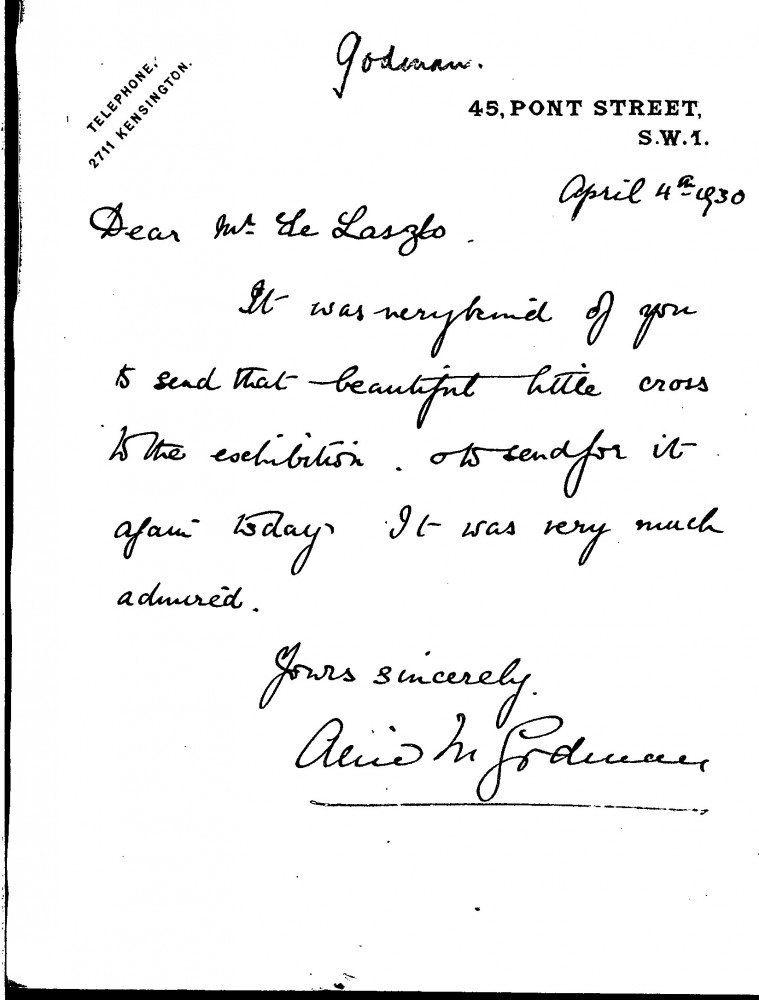 Godman.
TELEPHONE,
2711 KENSINGTON.
45, PONT STREET,
S.W.1.
April 4th 1930
Dear Mr de Laszlo.
It was very kind of you
to send that beautiful little cross
to the exhibition. & to send for it
again today. It was very much
admired.
Yours sincerely.
Alice M Godman